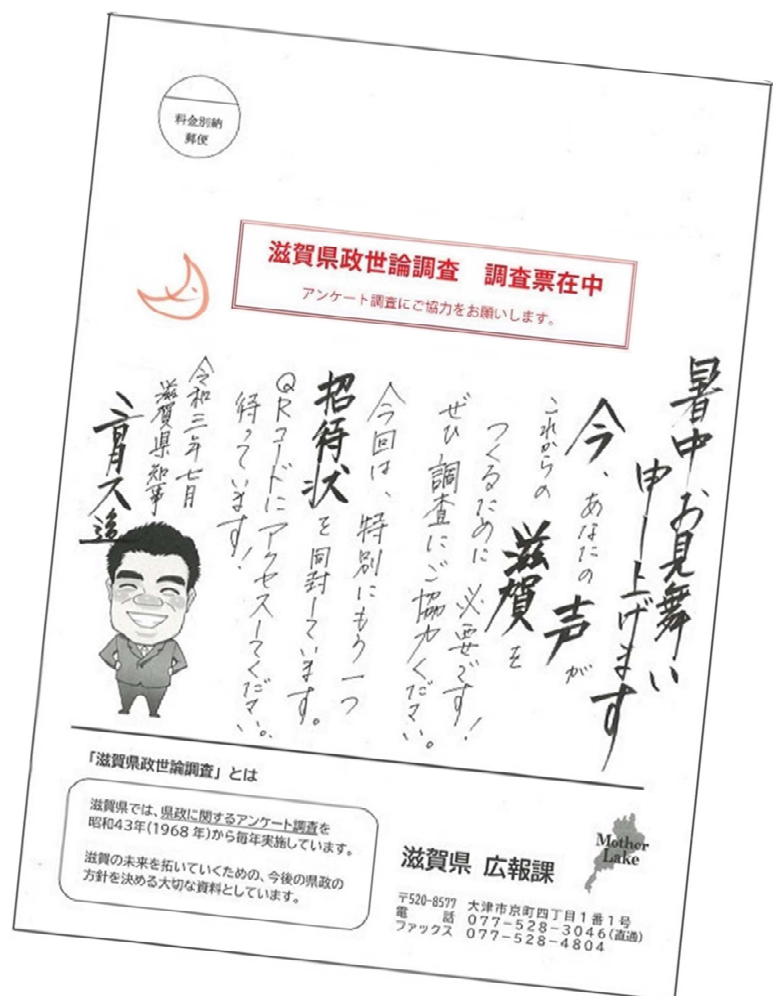 料金別納
郵便
滋賀県政世論調査　調査票在中
アンケート調査にご協力をお願いします。
暑中お見舞い
申し上げます
今、あなたの声が
これからの滋賀を
つくるために必要です！
ぜひ調査にご協力ください。
今回は、特別にもう一つ
招待状を同封しています。
QRコードにアクセスしてください。
待っています！
令和三年七月
滋賀県知事
三日月大造
「滋賀県政世論調査」とは
滋賀県では、県政に関するアンケート調査を
昭和43年(1968 年)から毎年実施しています。
滋賀の未来を拓いていくための、今後の県政の
方針を決める大切な資料としています。
Mother
Lake
滋賀県 広報課
〒520-8577　大津市京町四丁目１番１号
電　　話　077-528-3046(直通)
ファックス　077-528-4804